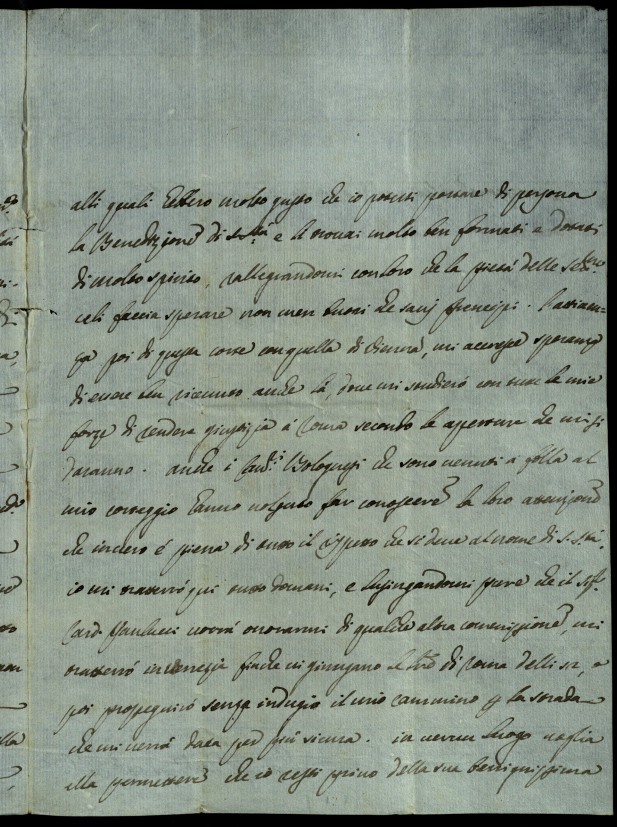 alli quali ebbero molto gusto che io potessi portare di persona
la Benedizione di S. Stà e li trovai molto ben formati e dotati
di molto spirito, rallegrandomi con loro che la pietà delle
celi faccia sperare non men buoni che savj Prencipi.
za poi di questa corte con quella di Vienna, mi accresce speranza
di essere ben ricevuto anche là, dove mi studierò con tutte le mie
forze di rendere giustizia à Roma secondo le aperture che mi si
daranno. anche i Bolognesi che sono venuti à folla al
mio corteggio hanno voluto far conoscere la loro attenzione
che in vero è piena di tutto il rispetto che si deve al nome di S. Stà.
io mi tratterrò qui tutto domani, e lusingandomi pure che il
Card. Paulucci vorrà onorarmi di qualche altra commissione, mi
tratterrò in Venezia finche mi giungano le di Roma delli 12, e
poi proseguirò senza indugio il mio cammino p la strada
che mi verrà data per più sicura. in verun luogo voglia
ella permettere che io resti privo della sua benignissima